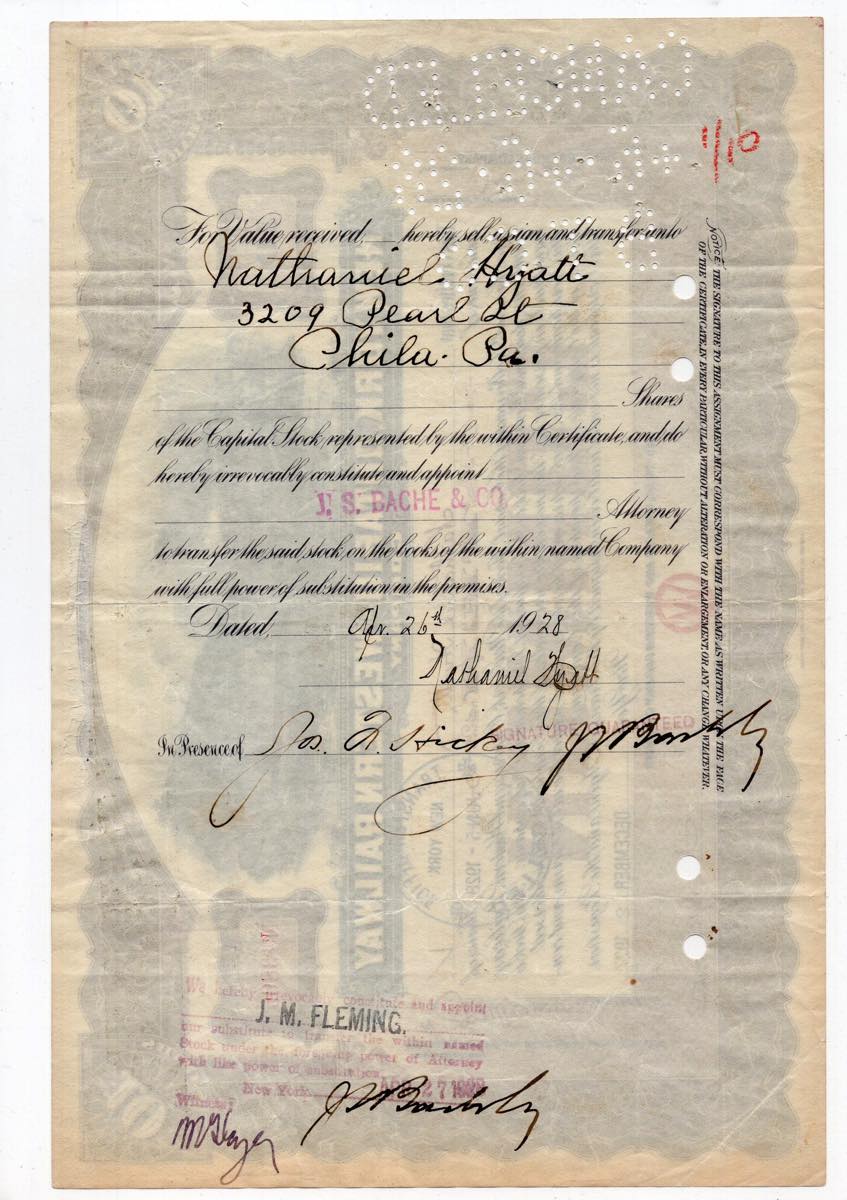 For Value received, hereby sell, assign, and transfer unto
Nathaniel Hyatt
3209 Pearl St
Chila. Pa.
Shares
of the Capital Stock, represented by the within Certificate, and, do
hereby irrevocably constitute and appoint
J. S. BACHE & CO.
Attorney
to transfer the said stock, on the books of the within, named Company
with full power of substitution in the premises.
Dated, Apr. 26th 1928
Nathaniel Hyatt
SIGNATURE GUARANTEED
In Presence of Jos. F. Hickey J S Bache & Co
NOTICE: THE SIGNATURE TO THIS ASSIGNMENT MUST CORRESPOND WITH THE NAME AS WRITTEN UPON THE FACE
OF THE CERTIFICATE, IN EVERY PARTICULAR, WITHOUT ALTERATION OR ENLARGEMENT, OR ANY CHANGE WHATEVER.
We hereby irrevocably constitute and appoint
J. M. FLEMING.
our substitute to transfer the within named
Stock under the foregoing power of Attorney
with like power of substitution.
New York 27
Witness:
J S Bache & Co